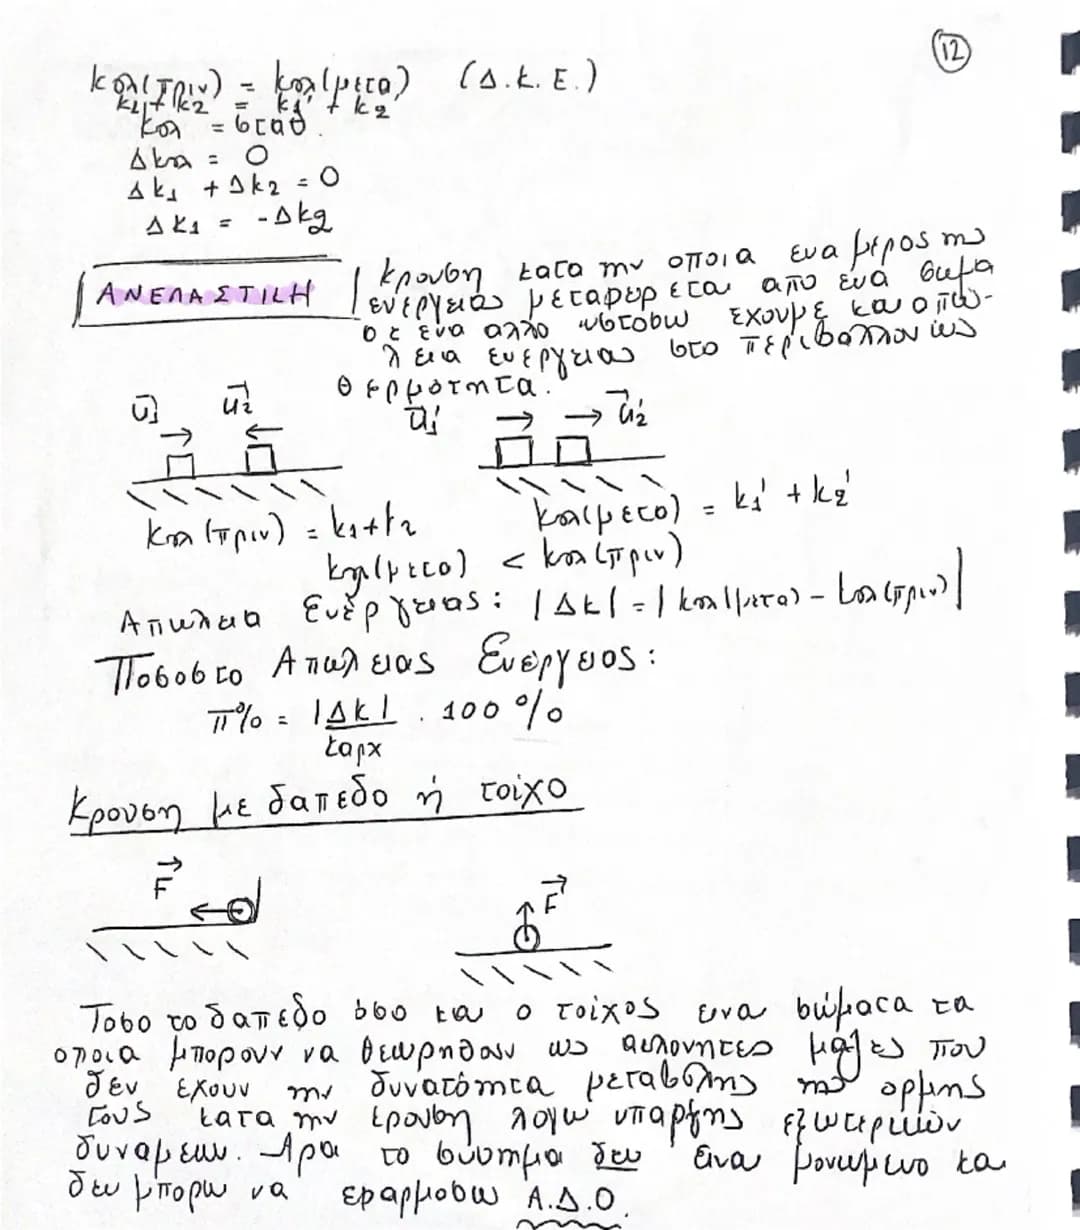 12
Κολ(πριν) = Κολ(μετα) (Δ.Κ.Ε.)
κ1+κ2 = κ1' + κ2'
Κολ = σταθ.
Δκολ = 0
Δκ1 + Δκ2 = 0
Δκ1 = -Δκ2
ΑΝΕΛΑΣΤΙΚΗ
Κρουση κατα την οποια ενα μερος της
ενεργειας μεταφερεται απο ενα σωμα
σε ενα αλλο ωστοσω εχουμε και απω-
λεια ενεργειας στο περιβαλλον ως
θερμοτητα.
u1 u2 u1' u2'
Κολ(πριν) = κ1+κ2
Κολ(μετα) = κ1' + κ2'
Κολ(μετα) < Κολ(πριν)
Απωλεια Ενέργειας: |ΔΚ| = |Κολ(μετα) - Κολ(πριν)|
Ποσοστο Απωλειας Ενέργειας:
π% = |ΔΚ| . 100%
Καρχ
Κρουση με δαπεδο ή τοίχο
F F
Τοσο το δαπεδο όσο και ο τοίχος ειναι σώματα τα
οποια μπορουν να θεωρηθουν ως ακλονητες μαζες που
δεν εχουν την δυνατότητα μεταβολης της ορμης
τους κατα την κρουση λογω υπαρξης εξωτερικών
δυναμεων. Αρα το συστημα δεν ειναι μονωμενο και
δεν μπορω να εφαρμοσω Α.Δ.Ο.